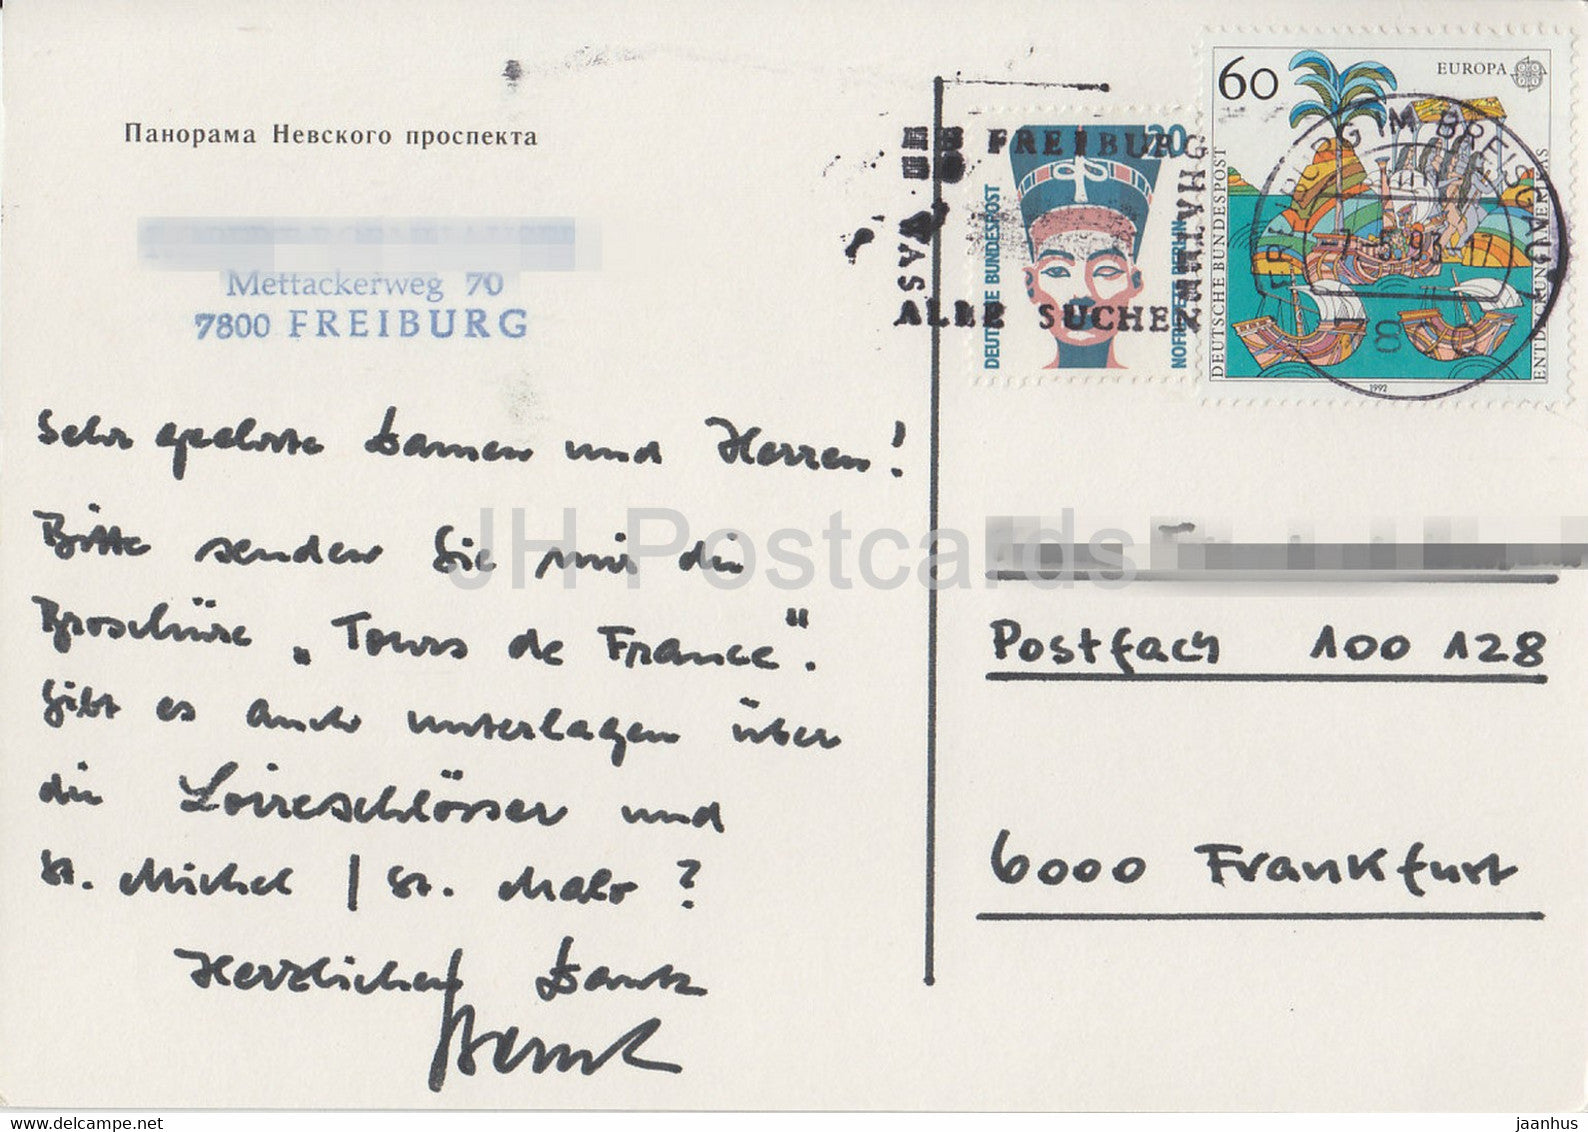 Панорама Невского проспекта
Mettackerweg 70
7800 FREIBURG
Sehr geehrte Damen und Herren!
Bitte senden Sie mir die
Broschüre „Tours de France".
Gibt es auch unterlagen über
die Loireschlösser und
St. Michel / St. Malo ?
Herzlichen Dank
FREIBURG HAT WAS
ALLE SUCHEN
20
DEUTSCHE BUNDESPOST
NOFRETETE BERLIN
60
EUROPA
DEUTSCHE BUNDESPOST
1992
FREIBURG IM BREISGAU
-7.-5.93.-17
7800
Postfach 100 128
6000 Frankfurt
JH Postcards
delcampe.net
jaanhus